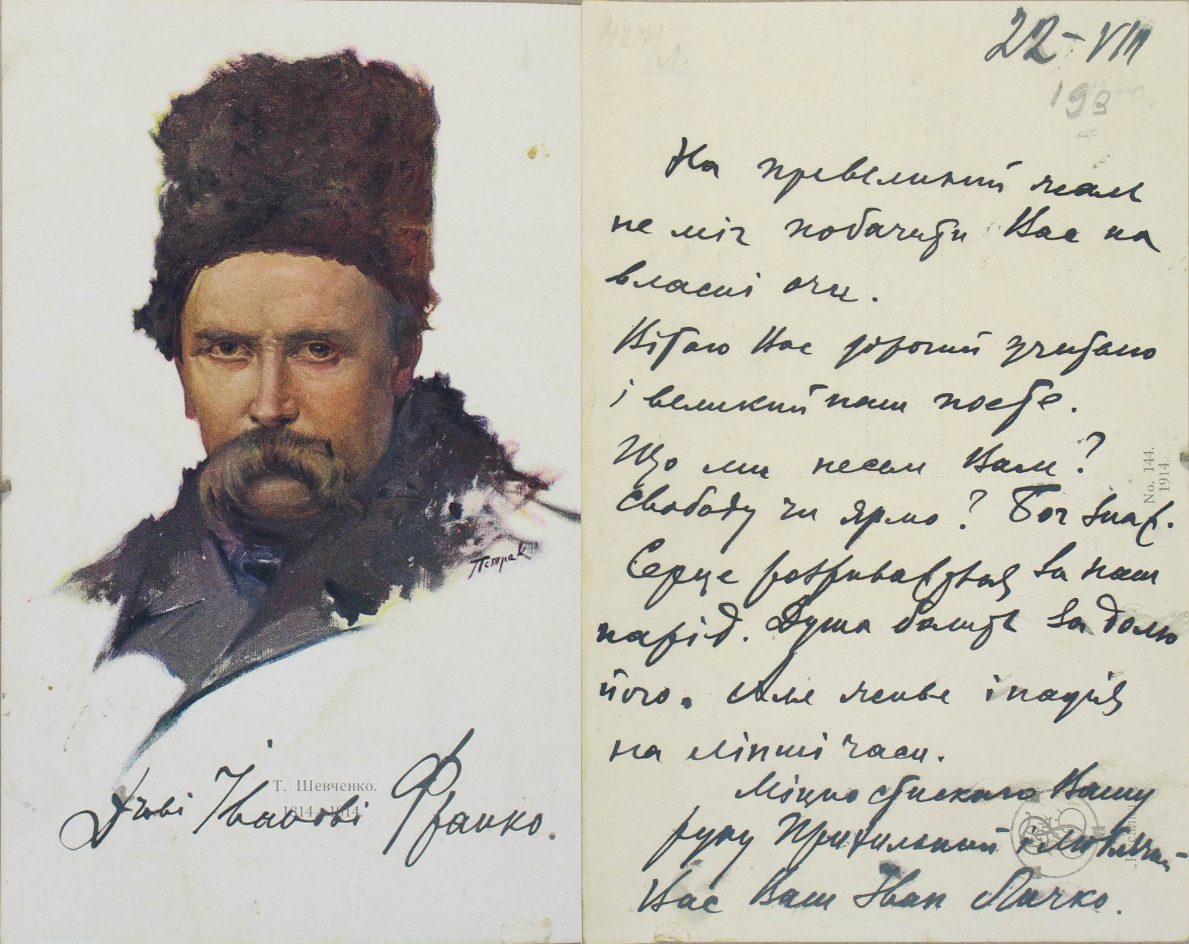 Петрак
Т. Шевченко.
1814 – 1914
Дові Іванові Франко.
22–VIII
19
На превеликий жаль
не міг побачити Вас на
власні очи.
Вітаю Вас дорогий учителю
і великий наш поете.
Що ми несем Вам?
Свободу чи ярмо? Бог знає.
Серце розривається за наш
нарід. Душа болить за долю
його. Але живе і надія
на ліпші часи.
Міцно стискаю Вашу
руку Прихильний і люблячий
Вас Ваш Іван Личко.
No. 144.
1914.